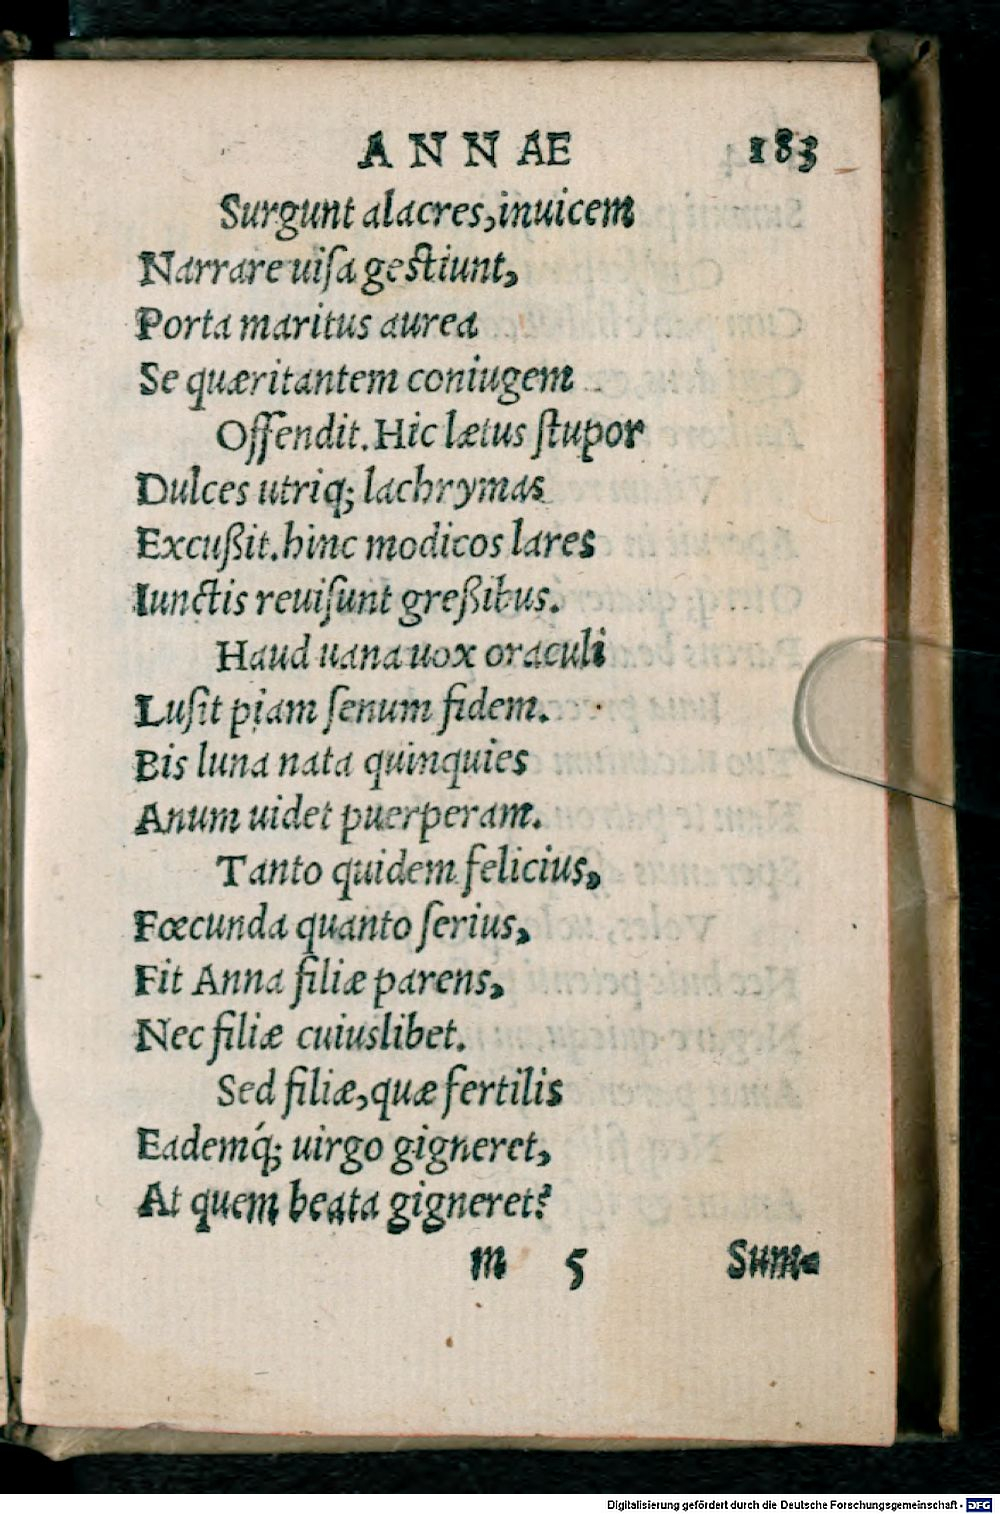 ANNAE 183
Surgunt alacres, inuicem
Narrare uiſa geſtiunt,
Porta maritus aurea
Se quæritantem coniugem
Offendit. Hic lætus ſtupor
Dulces utriq; lachrymas
Excußit. hinc modicos lares
Iunctis reuiſunt greßibus.
Haud uana uox oraculi
Luſit piam ſenum fidem.
Bis luna nata quinquies
Anum uidet puerperam.
Tanto quidem felicius,
Fœcunda quanto ſerius,
Fit Anna filiæ parens,
Nec filiæ cuiuslibet.
Sed filiæ, quæ fertilis
Eademq́; uirgo gigneret,
At quem beata gigneret?
m 5 Sum-
Digitalisierung gefördert durch die Deutsche Forschungsgemeinschaft - DFG